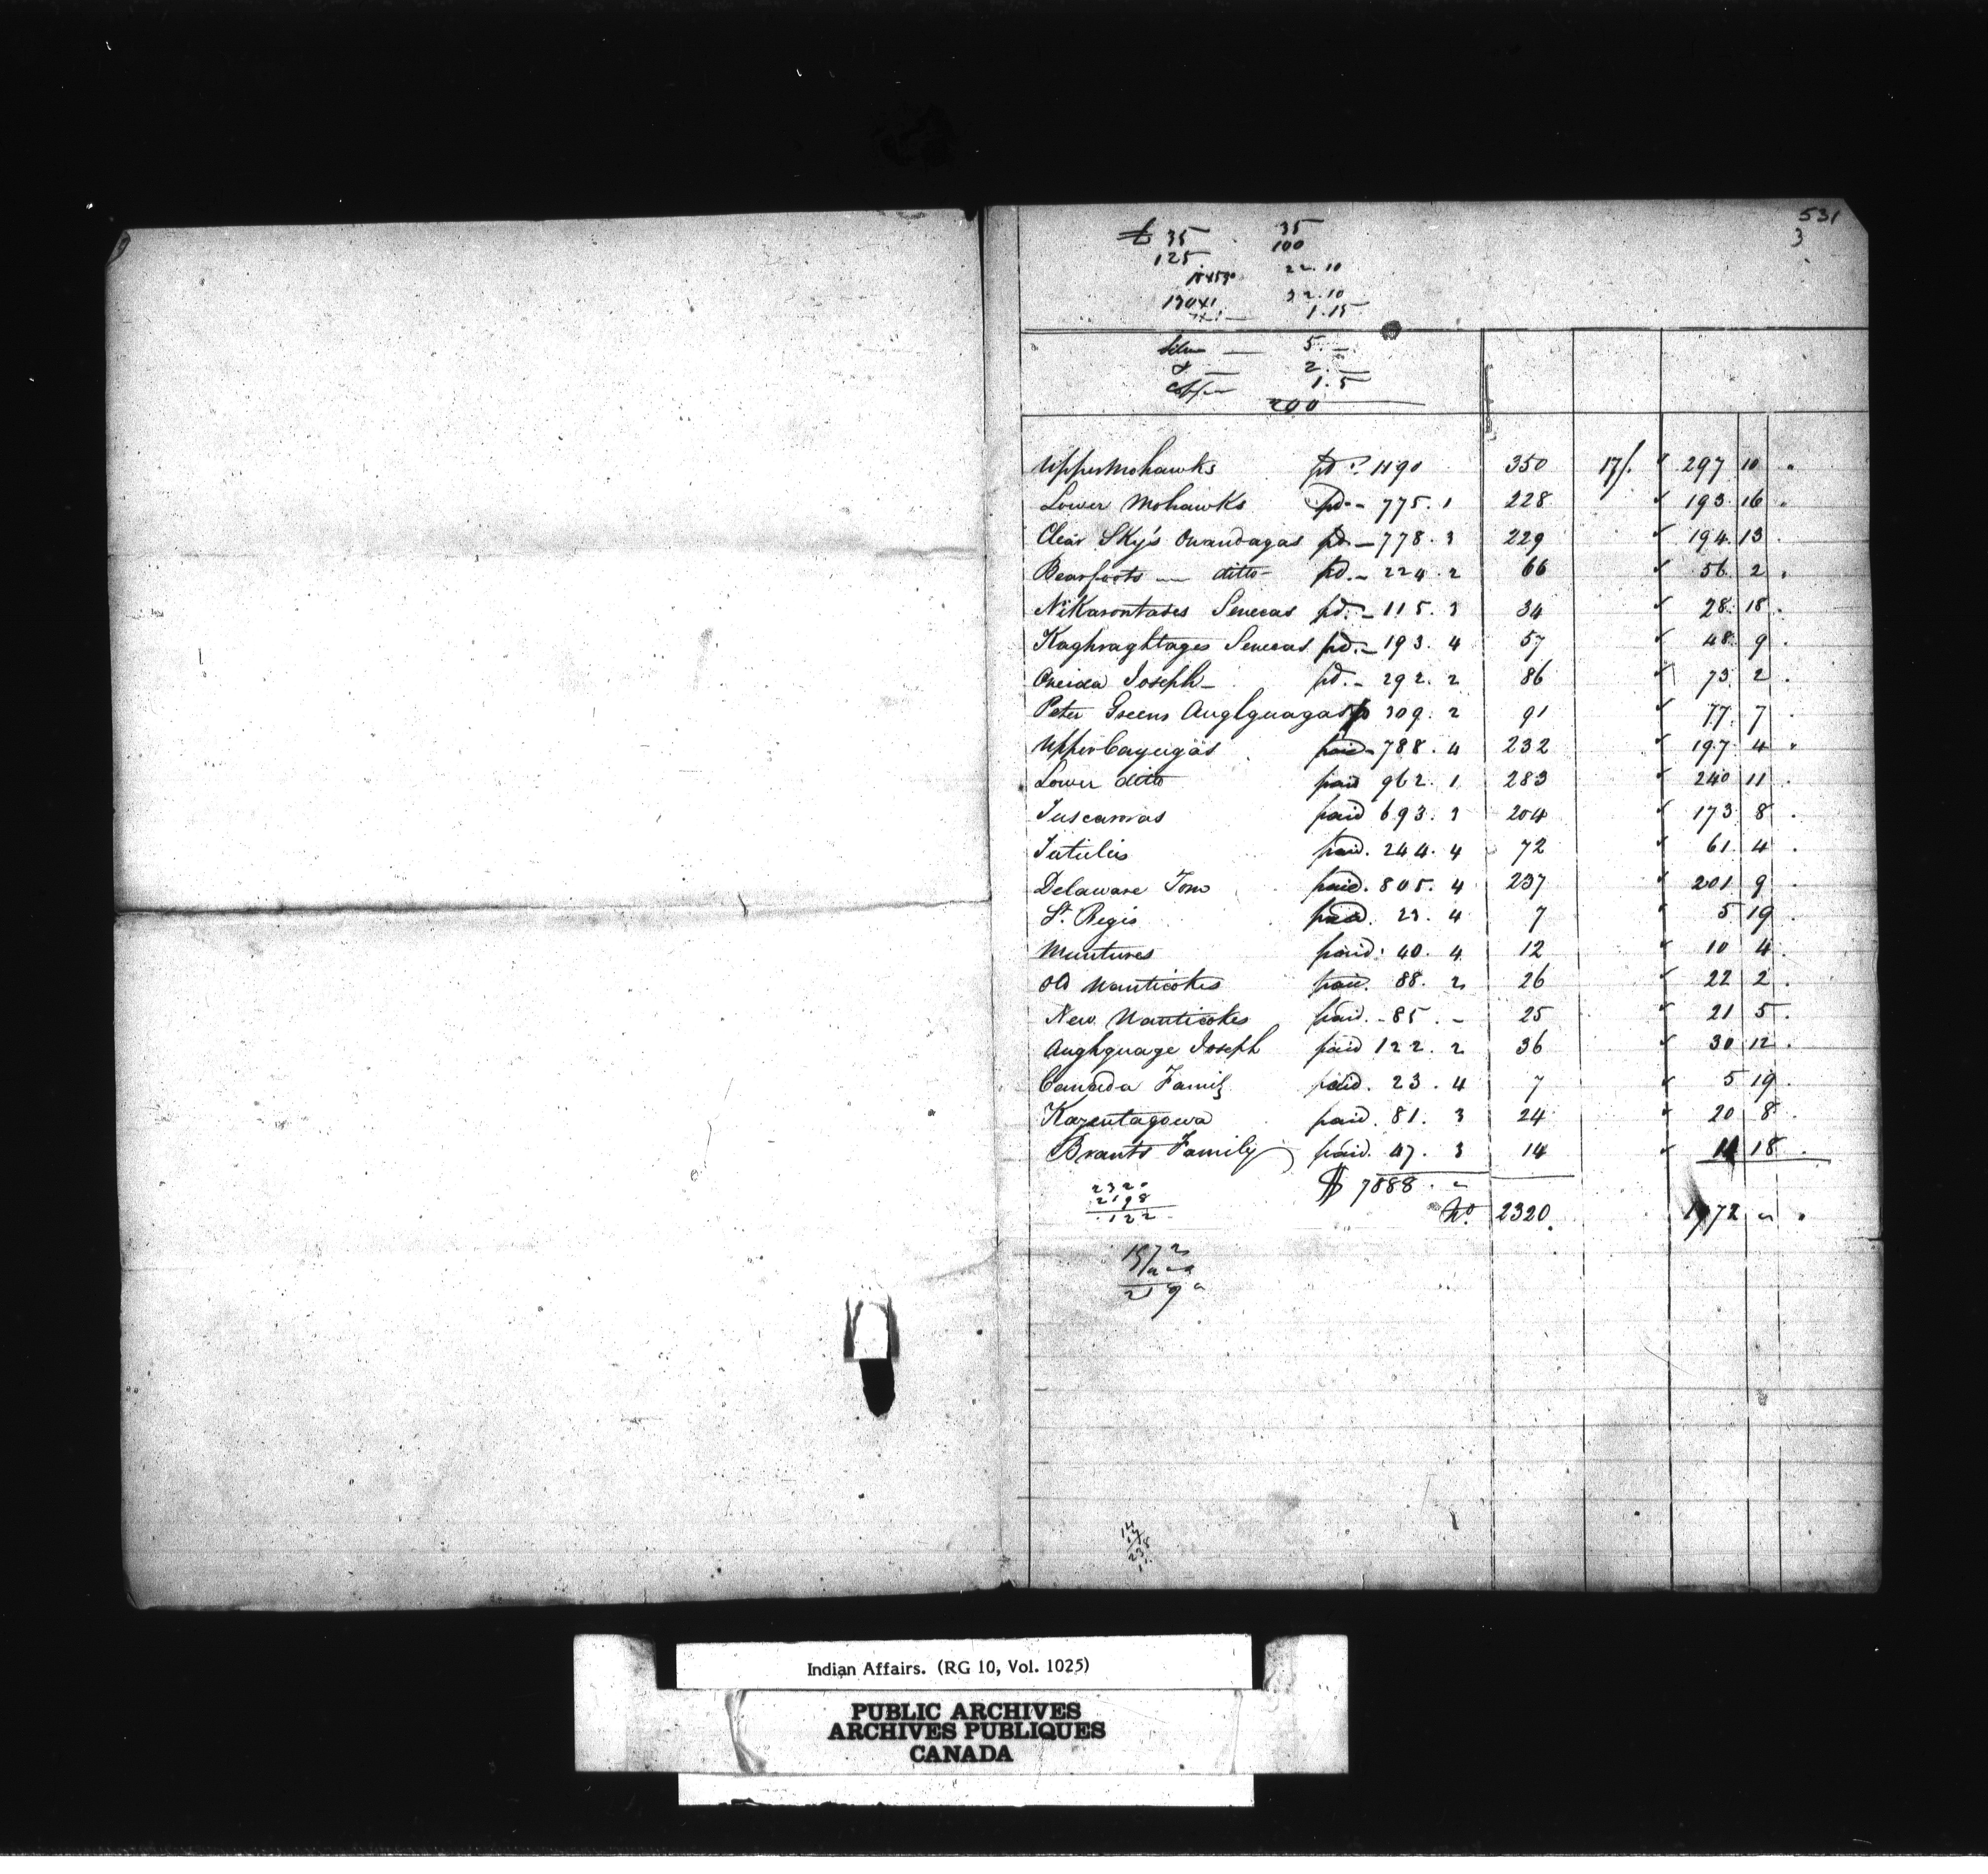 531
3
£ 35 35
125 100
22.10
130x1 32.10
1.15
Silver — 5. —
2. —
Copper 1.5
200
Upper Mohawks pd. 1190 350 17/. 297 10 .
Lower Mohawks pd. - 775. 1 228 193 16 .
Clear Sky's Onandagas pd. - 778. 3 229 194 13 .
Bearfoots — ditto - pd. - 224. 2 66 56 2 .
NiKarontases Senecas pd. - 115. 3 34 28 18 .
Kaghraghtages Senecas pd. - 193. 4 57 48 9 .
Oneida Joseph - pd. - 292. 2 86 73 2 .
Peter Greens Aughguagas p 309. 2 91 77 7 .
Upper Cayugas paid - 788. 4 232 197 4 .
Lower ditto paid 962. 1 283 240 11 .
Tuscaroras paid 693. 3 204 173 8 .
Tutulies paid. 244. 4 72 61 4 .
Delaware Tom paid. 805. 4 237 201 9 .
St. Regis paid. 23. 4 7 5 19 .
Muntures paid. 40. 4 12 10 4 .
Old Nanticokes paid. 88. 2 26 22 2 .
New Nanticokes paid. - 85. - 25 21 5 .
Aughguage Joseph paid 122. 2 36 30 12 .
Canada Family paid. 23. 4 7 5 19 .
Karentagowa paid. 81. 3 24 20 8 .
Brants Family paid. 47. 3 14 11 18 .
2320 $ 7888. -
2198 No. 2320. 1972 " .
122
1972
219
14
17
238
Indian Affairs. (RG 10, Vol. 1025)
PUBLIC ARCHIVES
ARCHIVES PUBLIQUES
CANADA